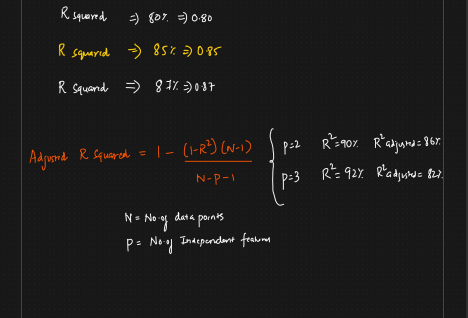 R squared ⇒ 80% ⇒ 0.80
R squared ⇒ 85% ⇒ 0.85
R squared ⇒ 87% ⇒ 0.87
Adjusted R squared = 1 - (1-R²)(N-1) / N-P-1
P=2 R²=90% R² adjusted = 86%
P=3 R²=92% R² adjusted = 82%
N = No. of data points
P = No. of Independent features